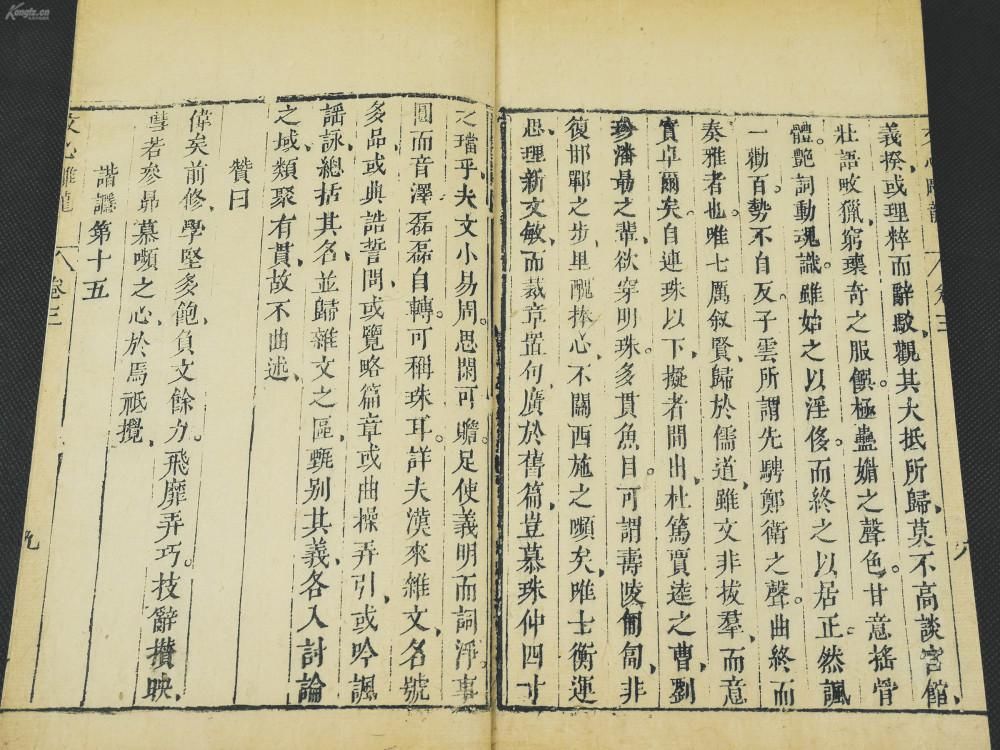 文心雕龍 卷三 八
義揆或理粹而辭駁觀其大抵所歸莫不高談宮館
壯語畋獵窮瓌奇之服饌極蠱媚之聲色甘意搖骨
體艷詞動魂識雖始之以淫侈而終之以居正然諷
一勸百勢不自反子雲所謂先騁鄭衛之聲曲終而
奏雅者也唯七厲叙賢歸於儒道雖文非拔羣而意
實卓爾矣自連珠以下擬者間出杜篤賈逵之曹劉
珍潘勗之輩欲穿明珠多貫魚目可謂壽陵匍匐非
復邯鄲之步里醜捧心不關西施之嚬矣唯士衡運
思理新文敏而裁章置句廣於舊篇豈慕珠仲四寸
之璫乎夫文小易周思閑可贍足使義明而詞淨事
圓而音澤磊磊自轉可稱珠耳詳夫漢來雜文名號
多品或典誥誓問或覽略篇章或曲操弄引或吟諷
謡詠總括其名並歸雜文之區甄别其義各入討論
之域類聚有貫故不曲述
贊曰
偉矣前修學堅多飽負文餘力飛靡弄巧技辭攢映
嘒若參昴慕嚬之心於焉祗攪
諧讔第十五
文心雕龍 卷三 九
Kongfz.cn